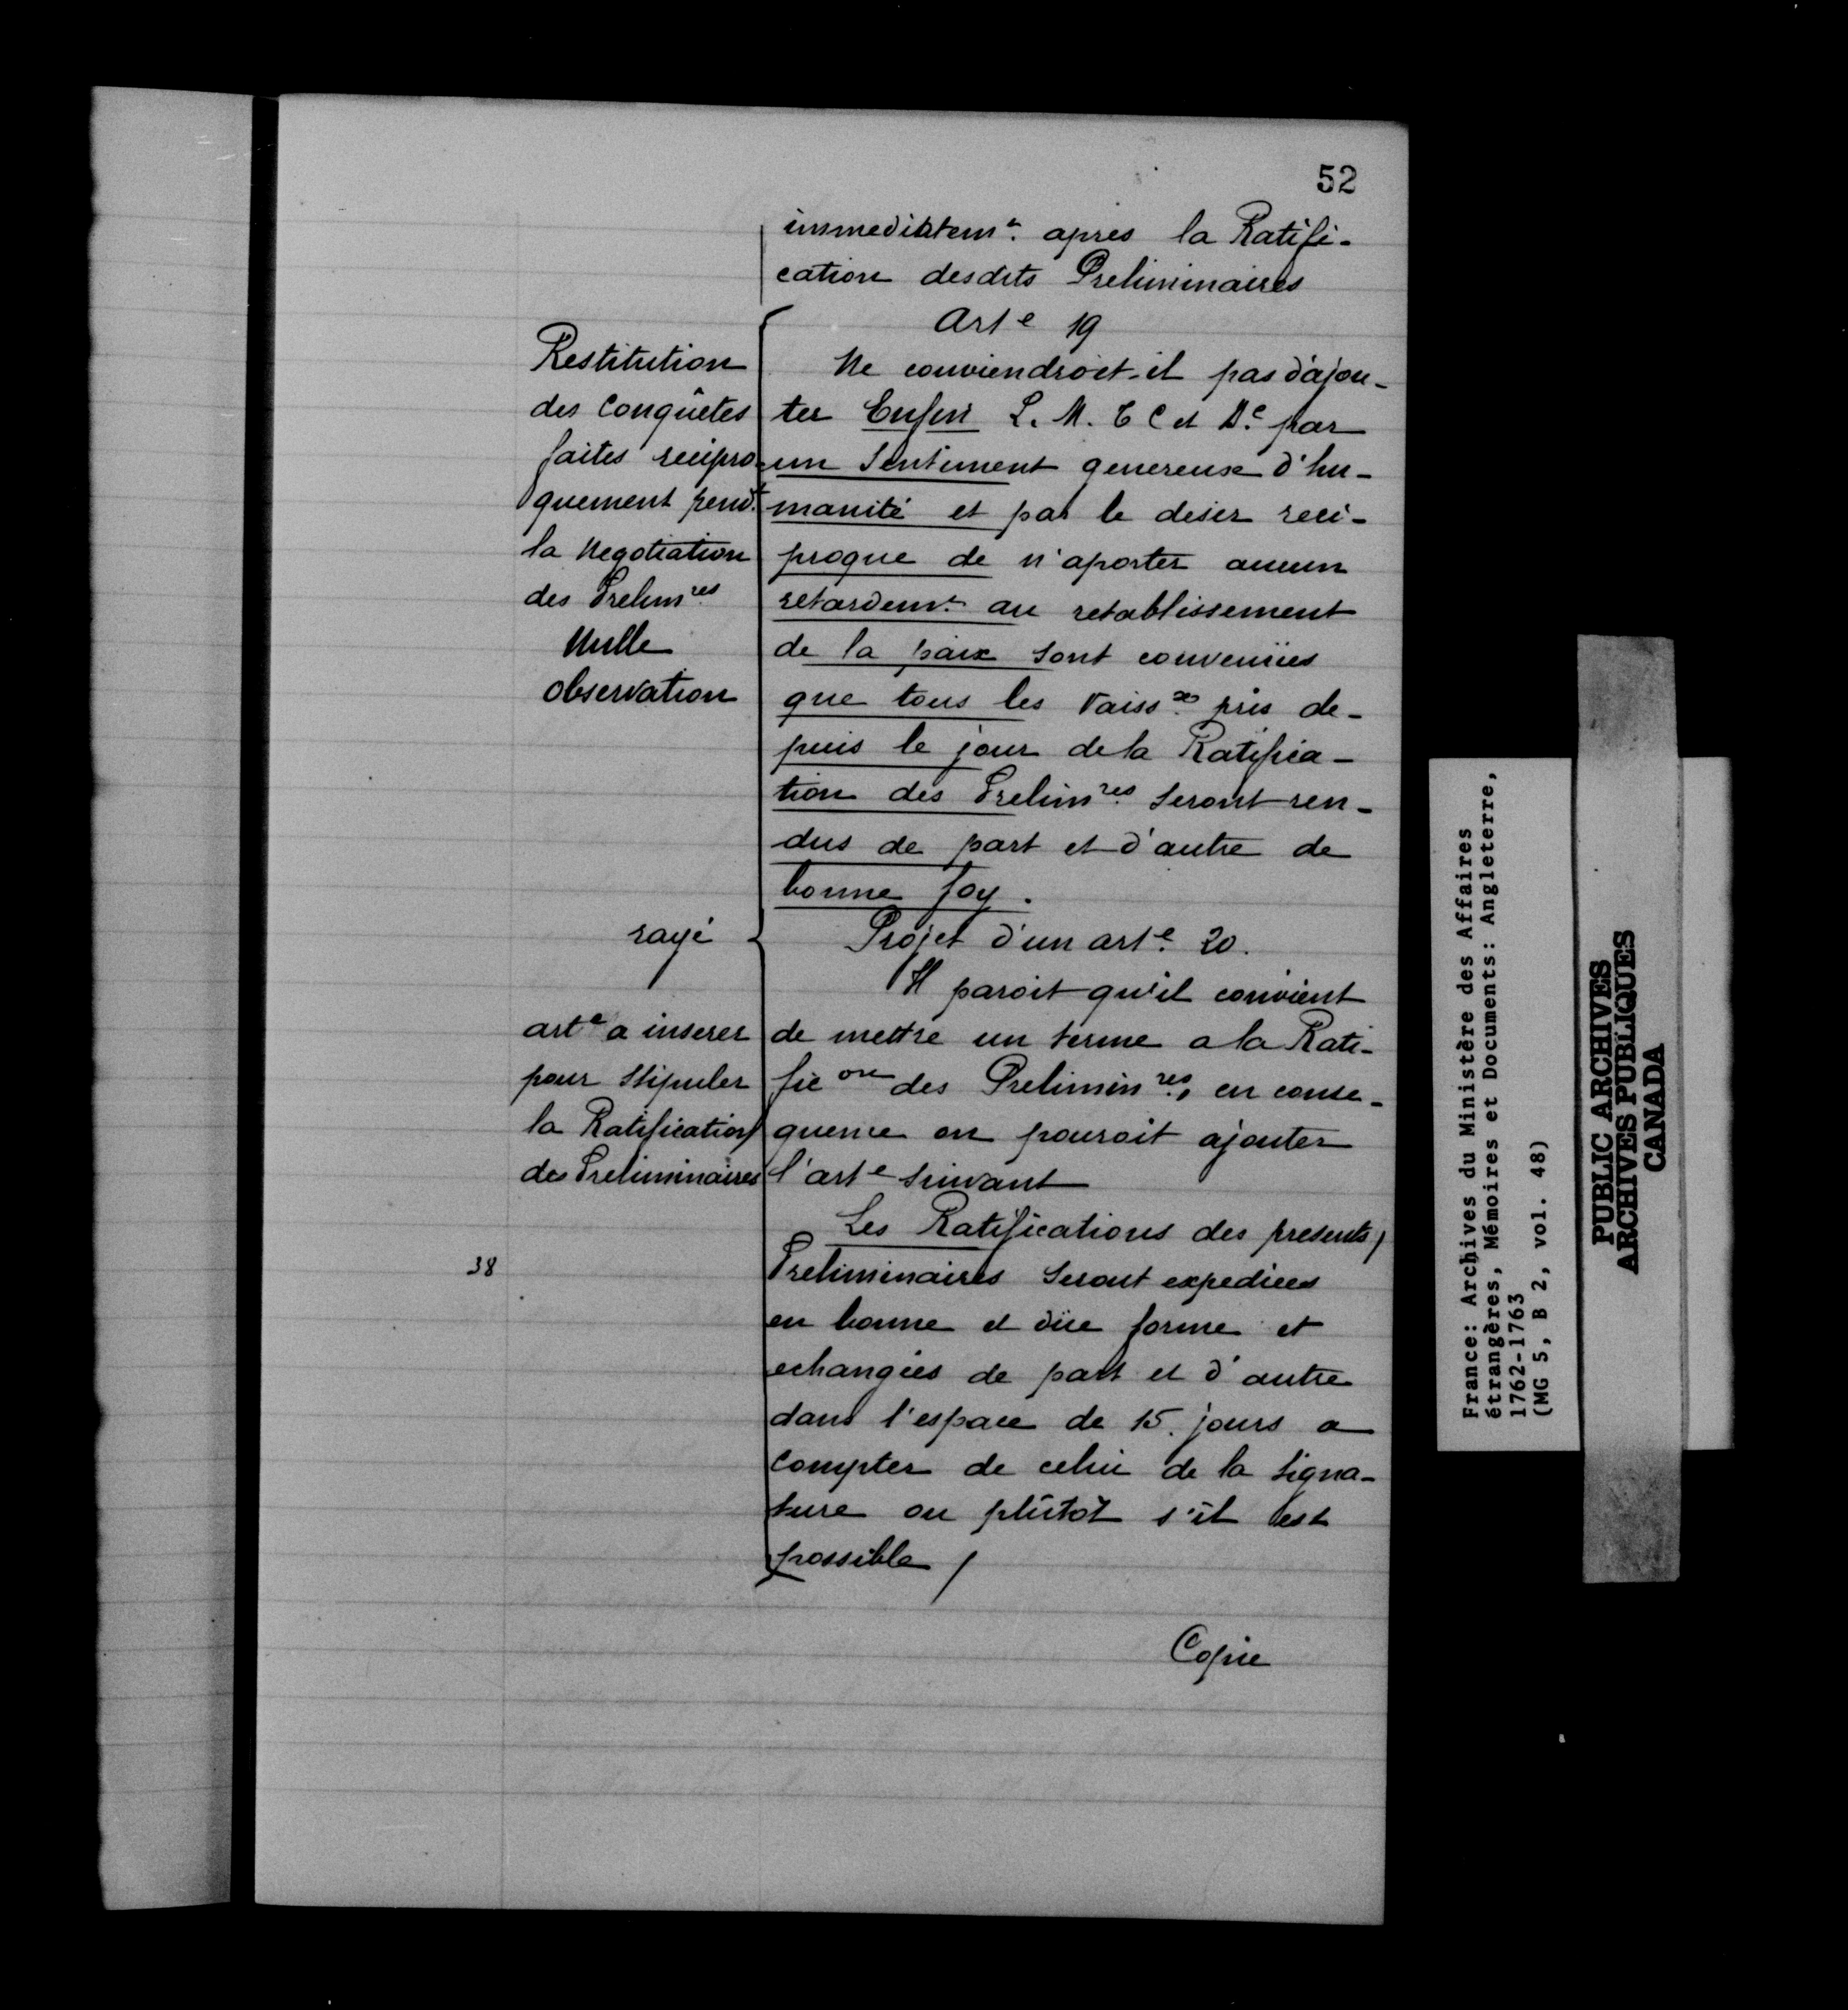 52
immediatemt. apres la Ratifi-
cation desdits Preliminaires
Arte 19
Restitution
des Conquêtes
faites recipro-
quement pendt.
la Negotiation
des Prelimres.
Nulle
observation
Ne conviendroit-il pas d'ajou-
ter Enfin L. M. T C et Bc. par
un Sentiment genereux d'hu-
manité et par le desir reci-
proque de n'aporter aucun
retardemt. au retablissement
de la paix sont convenües
que tous les Vaissx. pris de-
puis le jour de la Ratifica-
tion des Prelimres. Seront ren-
dus de part et d'autre de
bonne foy.
rayé
Projet d'un arte. 20.
arte a inserer
pour Stipuler
la Ratification
des Preliminaires
Il paroit qu'il convient
de mettre un terme a la Rati-
ficon des Preliminres., en conse-
quence on pouroit ajouter
l'arte suivant
Les Ratifications des presents
38
Preliminaires Seront expediees
en bonne et düe forme et
echangées de part et d'autre
dans l'espace de 15. jours a
compter de celui de la Signa-
ture ou plûtôt s'il est
possible /
Copie
France: Archives du Ministère des Affaires
étrangères, Mémoires et Documents: Angleterre,
1762-1763
(MG 5, B 2, vol. 48)
PUBLIC ARCHIVES
ARCHIVES PUBLIQUES
CANADA